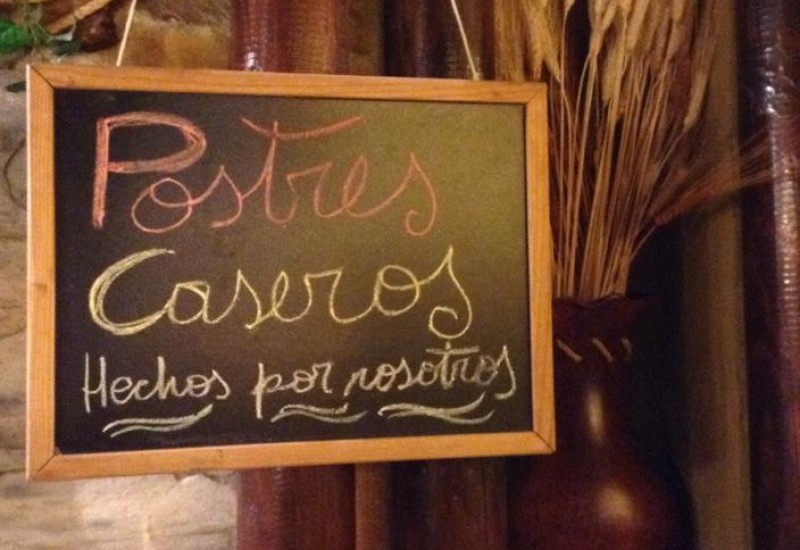 Postres
Caseros
Hechos por nosotros